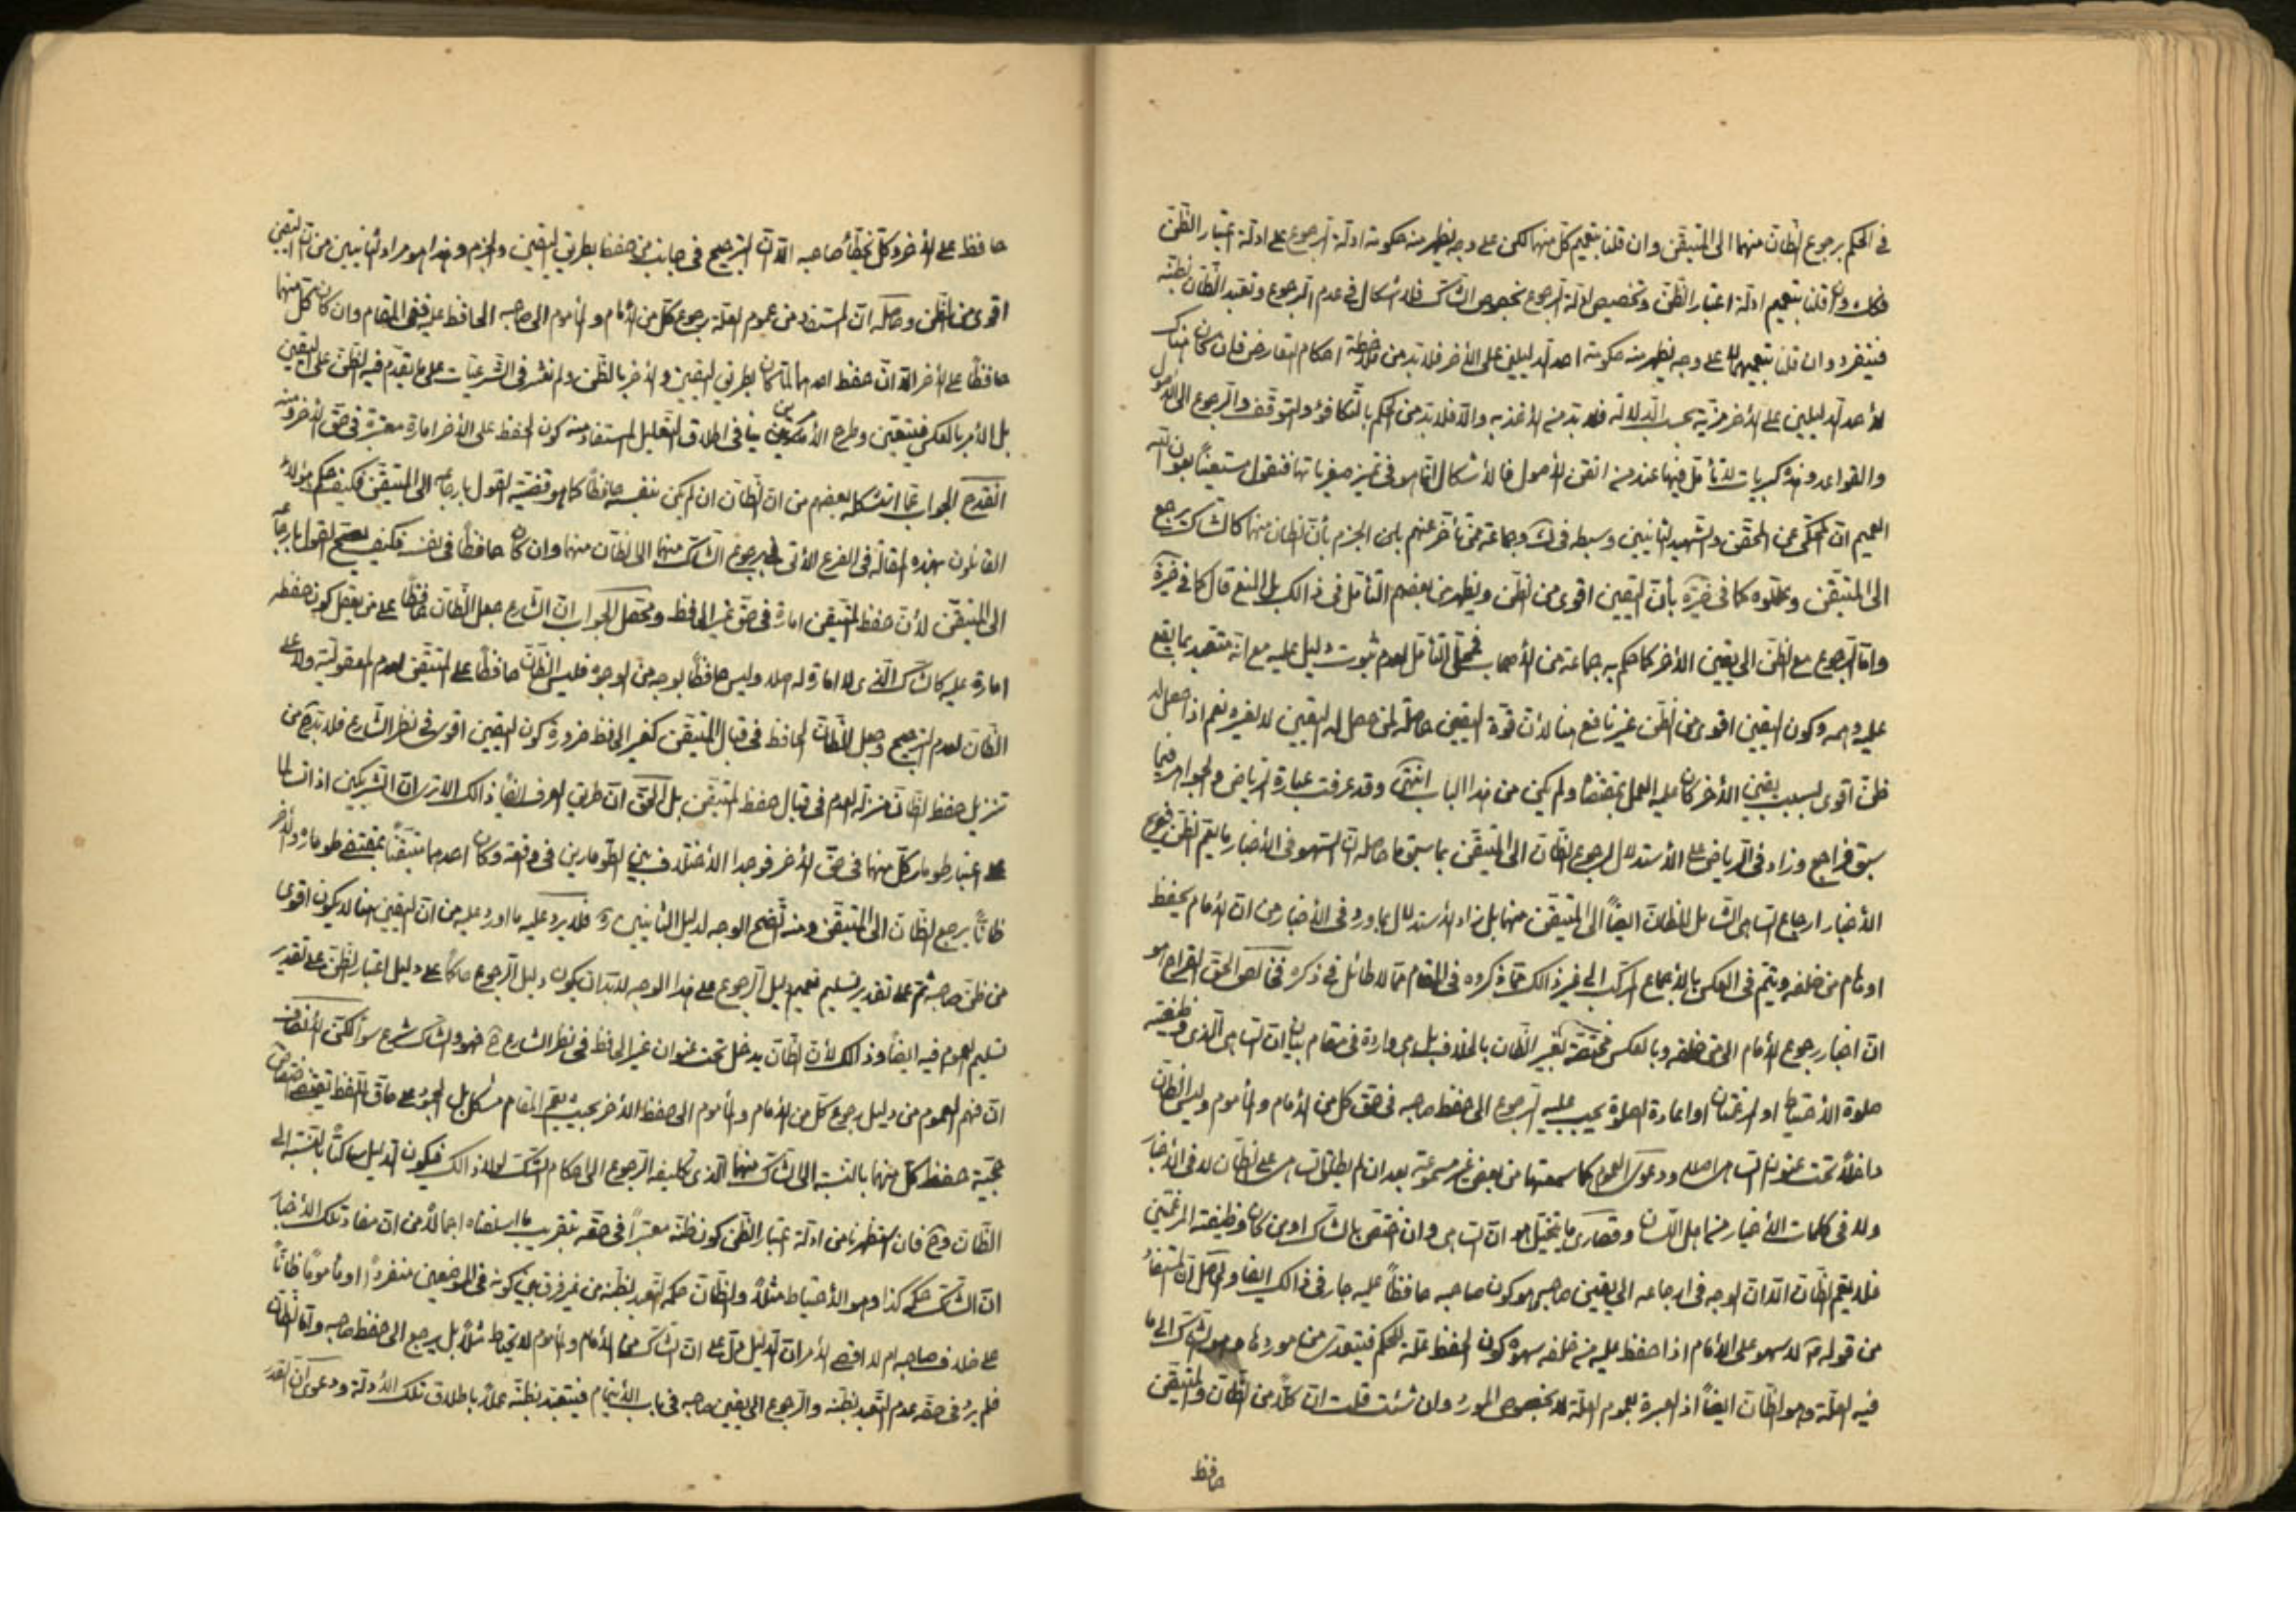 في الحكم برجوع الظان منهما الى المتيقن وان قلنا بتعميم كل منهما لكن على وجه يظهر منه حكومة ادلة الرجوع على ادلة اعتبار الظن
فكك وان قلنا بتعميم ادلة اعتبار الظن وتخصيص ادلة الرجوع بخصوص الشاك فلا اشكال في عدم الرجوع وتعبد الظان بظنه
فينفرد وان قلنا بتعميمهما لا على وجه يظهر منه حكومة احد الدليلين على الأخر فلا بد من ملاحظة احكام التعارض فان كان هناك
لأحد الدليلين على الأخر مزية بحسب الدلالة فلا بد من الأخذ به والا فلا بد من الحكم بالتكافؤ والتوقف والرجوع الى الأصول
والقواعد وهذه كبريات لا تأمل فيها عند من اتقن الأصول فالأشكال انما هو في تميز صغرياتها فنقول مستعينًا بعون الله
العميم ان المحكى عن المحقق والشهيد الثانيين وسبطه في ك وجماعة ممن تأخر عنهم الجزم بأن الظان منهما كالشاك يرجع
الى المتيقن وعللوه كما في خيرة بأن اليقين اقوى من الظن ويظهر من بعضهم التأمل في ذالك بل المنع قال كما في خيرة
واما الرجوع مع الظن الى يقين الأخر كما حكم به جماعة من الأصحاب فمحل التأمل لعدم ثبوت دليل عليه مع انه متعبد بما يقع
عليه وهمه وكون اليقين اقوى من الظن غير نافع هنا لأن قوة اليقين حاصلة لمن حصل له اليقين لا لغيره نعم اذا حصل له
ظن اقوى بسبب يقين الأخر كان عليه العمل بمقتضاه ولم يكن من هذا الباب انتهى وقد عرفت عبارة الرياض والجواهر فيما
سبق فراجع وزاد في الرياض على الأستدلال لرجوع الظان الى المتيقن بما سبق ما حاصله ان السهو في الأخبار ما يعم الظن
الأخبار ارجاع الساهى الشامل للظان ايضًا الى المتيقن منهما بل زاد الأستدلال بما ورد في الأخبار من ان الأمام يحفظ
اوهام من خلفه ويتم في العكس بالأجماع المركب الى غير ذالك مما ذكروه في المقام مما لا طائل في ذكره فخالص الحق القراح هو
ان اخبار رجوع الأمام الى من خلفه وبالعكس مختصة بغير الظان بلا خلاف بل هى واردة في مقام بيان ان الساهى الذى وظيفته
صلوة الأحتياط او المرغمتان او اعادة الصلوة يجب عليه الرجوع الى حفظ صاحبه في حق كل من الأمام والمأموم وليس الظان
داخلًا تحت عنوان الساهى اصلا ودعوى العموم كما سمعتها من بعض غير مسموعة بعد ان لم يطلق الساهى على الظان لا في الأخبار
ولا في كلمات الأخيار من اهل اللسان وقصارى ما يتخيل هو ان الساهى وان اختص بالشاك او من كان وظيفته المرغمتين
فلا يعم الظان الا ان الوجه في ارجاعه الى يقين صاحبه هو كون صاحبه حافظًا عليه جار في ذالك ايضا والحاصل ان المستفاد
من قوله لا سهو على الأمام اذا حفظ عليه من خلفه سهوه كون الحفظ علة للحكم فيتعدى من موردها وهو الشاك الى ما
فيه العلة وهو الظان ايضًا اذ العبرة بعموم العلة لا بخصوص المورد وان شئت قلت ان كلًا من الظان والمتيقن
حافظ
حافظ على الأخر وكل يخطأ صاحبه الا ان الترجيح في جانب من حفظ بطريق اليقين والجزم وهذا هو مراد الثانيين من ان اليقين
اقوى من الظن وحاصله ان المستفاد من عموم العلة رجوع كل من الأمام والمأموم الى صاحبه الحافظ عليه ففى المقام وان كان كل منهما
حافظًا على الأخر الا ان حفظ احدهما لما كان بطريق اليقين والأخر بالظن ولم نعثر في الشرعيات على ما يقدم فيه الظن على اليقين
بل الأمر بالعكس فيتعين وطرح الأمرين ينافى اطلاق التعليل المستفاد منه كون الحفظ على الأخر امارة معتبرة في حق الأخر ومنه
انقدح الجواب عما استشكله بعضهم من ان الظان ان لم يكن بنفسه حافظًا كما هو قضية القول بارجاعه الى المتيقن فكيف حكم هؤلاء
القائلون بهذه المقالة في الفرع الأتى برجوع الشاك منهما الى الظان منهما وان كان حافظًا في نفسه فكيف يصح القول بارجاعه
الى المتيقن لأن حفظ المتيقن امارة في حق غير الحافظ ومحصل الجواب ان الشارع جعل الظان حافظًا على من يعقل كون حفظه
امارة عليه كالشاك الذى لا امارة له اصلا وليس حافظًا بوجه من الوجوه فليس الظان حافظًا على المتيقن لعدم المعقولية ولا على
الظان لعدم الترجيح وجعل الظان الحافظ في قبال المتيقن كغير الحافظ ضرورة كون اليقين اقوى في نظر الشارع فلا بد من
تنزيل حفظ الظان منزلة العدم في قبال حفظ المتيقن بل الحق ان طريق العرف ايضًا ذالك الا ترى ان الشريكين اذا تسالما
على اعتبار طومار كل منهما في حق الأخر فوجدا الأختلاف بين الطومارين في دفعة وكان احدهما متيقنًا بمقتضى طوماره والأخر
ظانًا يرجع الظان الى المتيقن ومنه اتضح الوجه لدليل الثانيين ره فلا يرد عليه ما اورد عليه من ان اليقين هنا لا يكون اقوى
من ظن صاحبه ثم على تقدير تسليم تعميم دليل الرجوع على هذا الوجه لا بد ان يكون دليل الرجوع حاكمًا على دليل اعتبار الظن على تقدير
تسليم العموم فيه ايضًا وذالك لأن الظان يدخل تحت عنوان غير الحافظ في نظر الشارع ح فهو والشاك شرع سواء لكن الأنصاف
ان فهم العموم من دليل رجوع كل من الأمام والمأموم الى حفظ الأخر بحيث يعم المقام مشكل بل الجمود على حاق اللفظ يقتضى اختصاص
حجية حفظ كل منهما بالنسبة الى الشاك منهما الذى تكليفه الرجوع الى احكام الشك لولا ذالك فيكون الدليل ساكتًا بالنسبة الى
الظان وح فان استظهرنا من ادلة اعتبار الظن كون ظنه معتبرًا في حقه بتقريب ما اسلفناه اجمالًا من ان مفاد تلك الأخبار
ان الشاك حكمه كذا وهو الأحتياط مثلًا والظان حكمه التعبد بظنه من غير فرق بين كونه في الموضعين منفردًا او مأمومًا ظانًا
على خلاف صاحبه ام لا اقصى الأمر ان الدليل دل على ان الشاك من الأمام والمأموم لا يحتاط مثلًا بل يرجع الى حفظ صاحبه واما الظان
فلم يرد في حقه عدم التعبد بظنه والرجوع الى يقين صاحبه في باب الأيتمام فيتعبد بظنه عملًا باطلاق تلك الأدلة ودعوى ان القدر